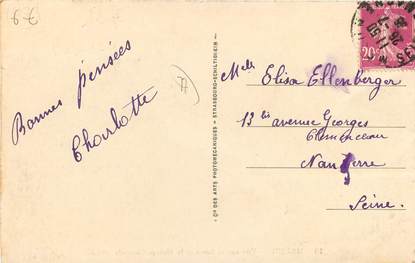 67
Bonnes pensées
Charlotte
Cie DES ARTS PHOTOMÉCANIQUES - STRASBOURG-SCHILTIGHEIM -
20c
Melle Elisa Ellenberger
13 bis avenue Georges
Clemenceau
Nanterre
Seine.